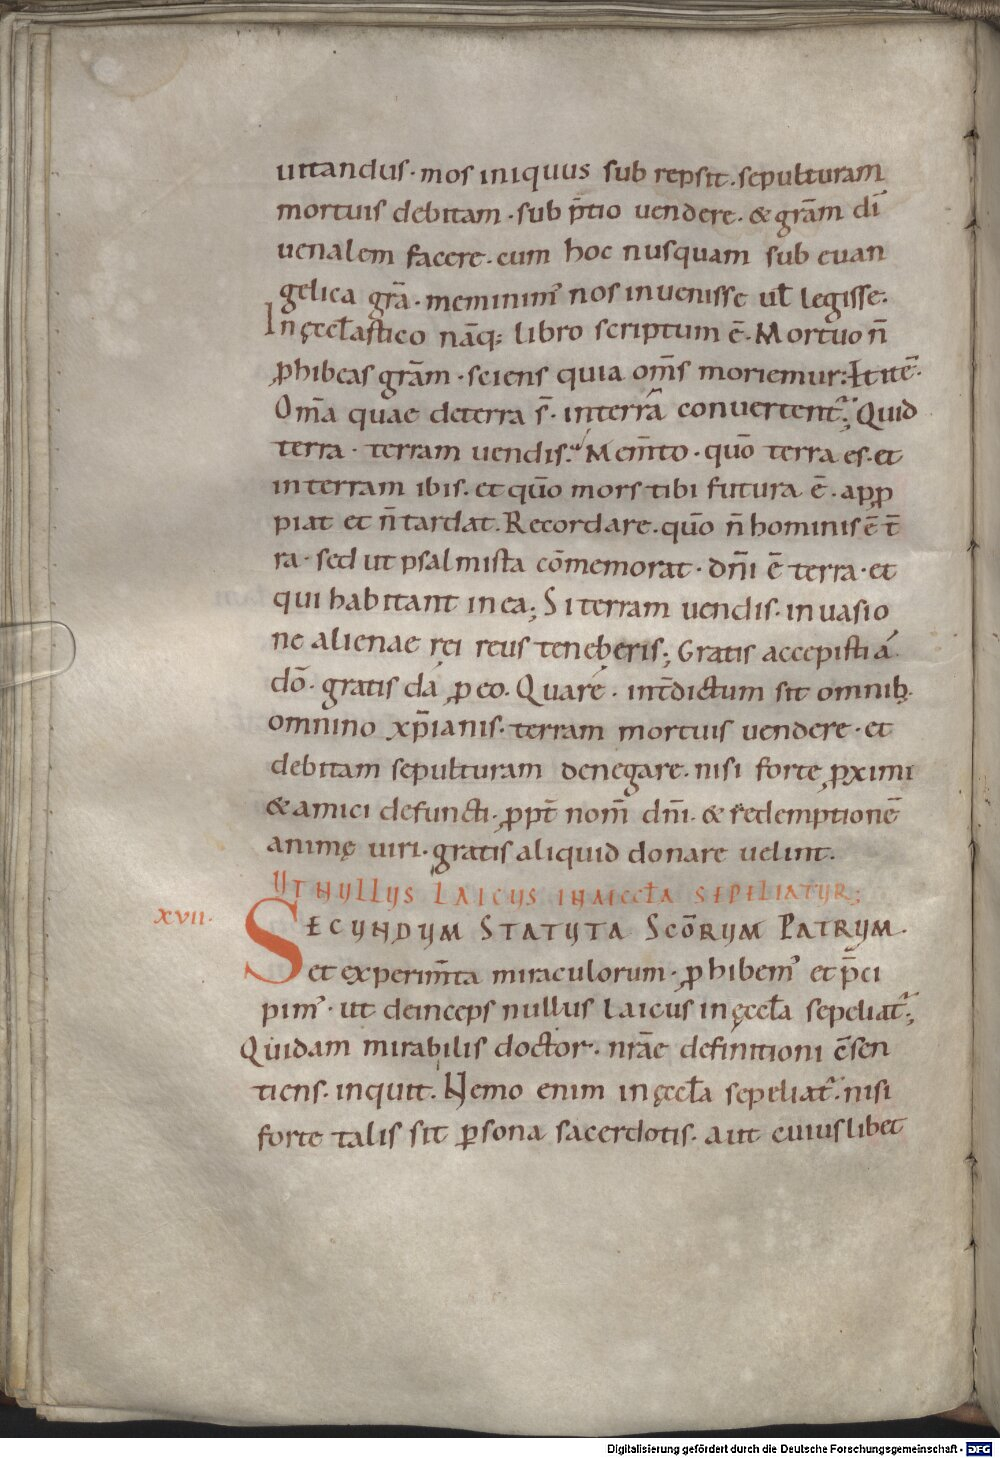 uitandus· mos iniquus sub repsit. sepulturam
mortuis debitam· sub p̄tio uendere· & grām dī
uenalem facere· cum hoc nusquam sub euan
gelica grā· meminim' nos inuenisse ut̄ legisse·
In ęccƚastico nāq; libro scriptum ē· Mortuo n̄
ꝓhibeas grām· sciens quia om̄s moriemur: Et itē·
Om̄a quae deterra s̄· interrā conuertent̄; Quid
terra· terram uendis? Mem̄to· quō terra es· et
interram ibis· et quō mors tibi futura ē· apꝓ
piat et n̄ tardat. Recordare· quō n̄ hominis ē t̄
ra· sed ut psalmista cōmemorat· dn̄i ē terra· et
qui habitant in ea; Si terram uendis· inuasio
ne alienae rei reus teneberis; Gratis accepisti á
dō· gratis dá ꝓ eo. Quare· int̄dictum sit omnib;
omnino xp̄ianis· terram mortuis uendere· et
debitam sepulturam denegare· nisi forte ꝓximi
& amici defuncti· ꝓpt̄ nom̄ dn̄i· & redemptionē
animę uiri· gratis aliquid donare uelint.
UT NULLUS LAICUS IN AECCƚA SEPELIATUR;
xvii· SECUNDUM STATUTA SCŌRUM PATRUM·
et experim̄ta miraculorum· ꝓhibem' et p̄ci
pim'· ut deinceps nullus laicus in ęccƚa sepeliat̄;
Quidam mirabilis doctor· nrāe definitioni c̄sen
tiens· inquit. Nemo enim in ęccƚa sepeliat̄· nisi
forte talis sit ꝑsona sacerdotis· aut cuiuslibet
Digitalisierung gefördert durch die Deutsche Forschungsgemeinschaft - DFG